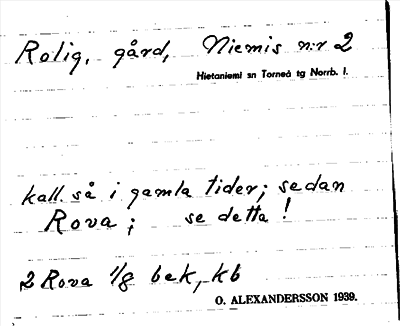 Rolig, gård, Niemis n:r 2
Hietaniemi sn Torneå tg Norrb. l.
kall. så i gamla tider; sedan
Rova; se detta!
2 Rova 1/8 bek, kb
O. ALEXANDERSSON 1939.